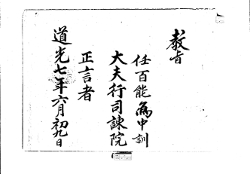 敎旨
任百能爲中訓
大夫行司諫院
正言者
道光七年六月初九日